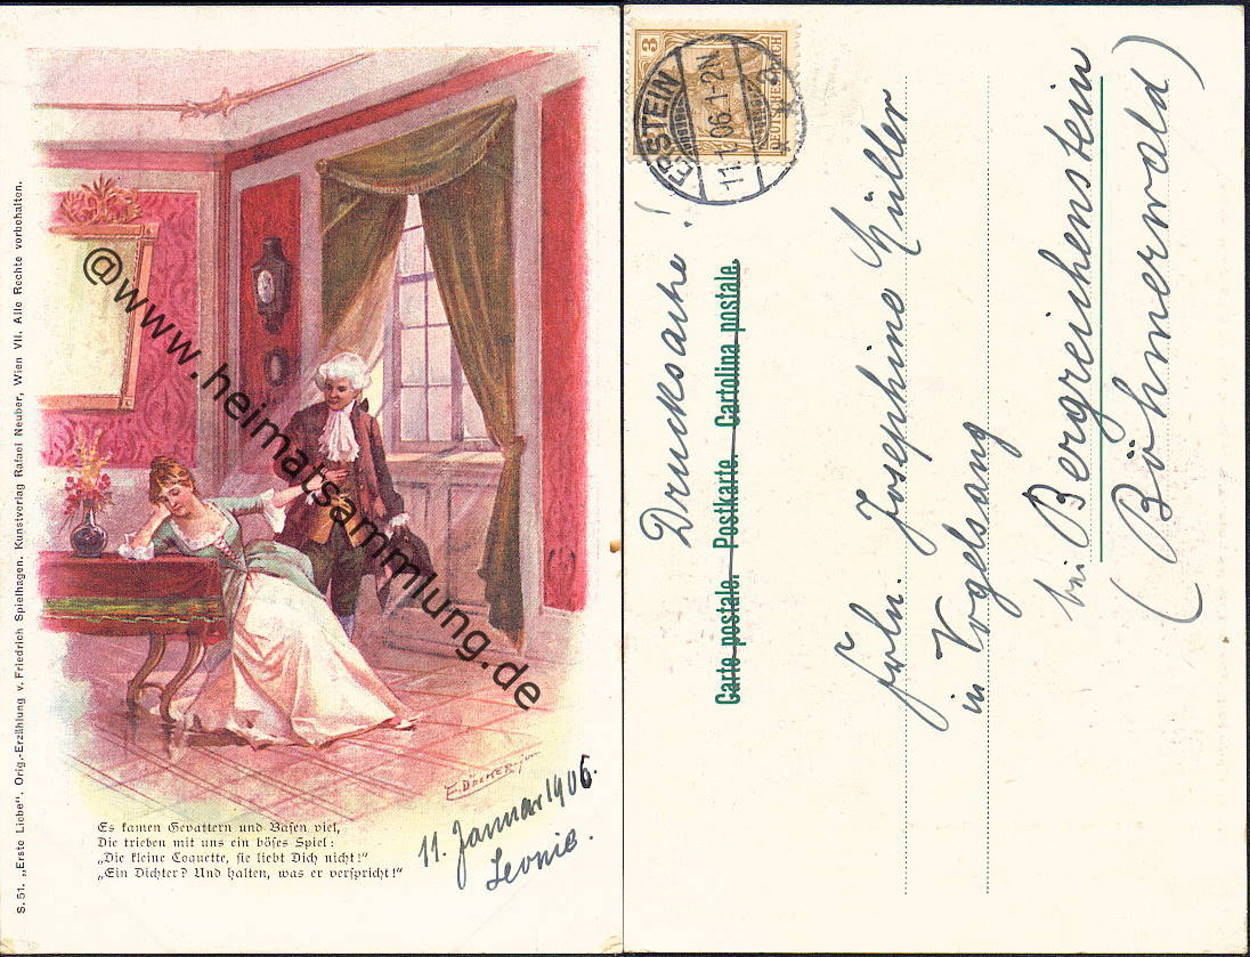 S. 51. „Erste Liebe“. Orig.-Erzählung v. Friedrich Spielhagen. Kunstverlag Rafael Neuber, Wien VII. Alle Rechte vorbehalten.
@www.heimatsammlung.de
E. DÖCKER jun
Es kamen Gevattern und Basen viel,
Die trieben mit uns ein böses Spiel:
„Die kleine Coquette, sie liebt Dich nicht!“
„Ein Dichter? Und halten, was er verspricht!“
11. Januar 1906.
Leonie.
3
DEUTSCHES REICH
EBSTEIN
11.1.06.1-2N.
a
Drucksache!
Carte postale. Postkarte. Cartolina postale.
Fräuln. Josephine Müller
in Vogelsang
bei Bergreichenstein
(Böhmerwald)